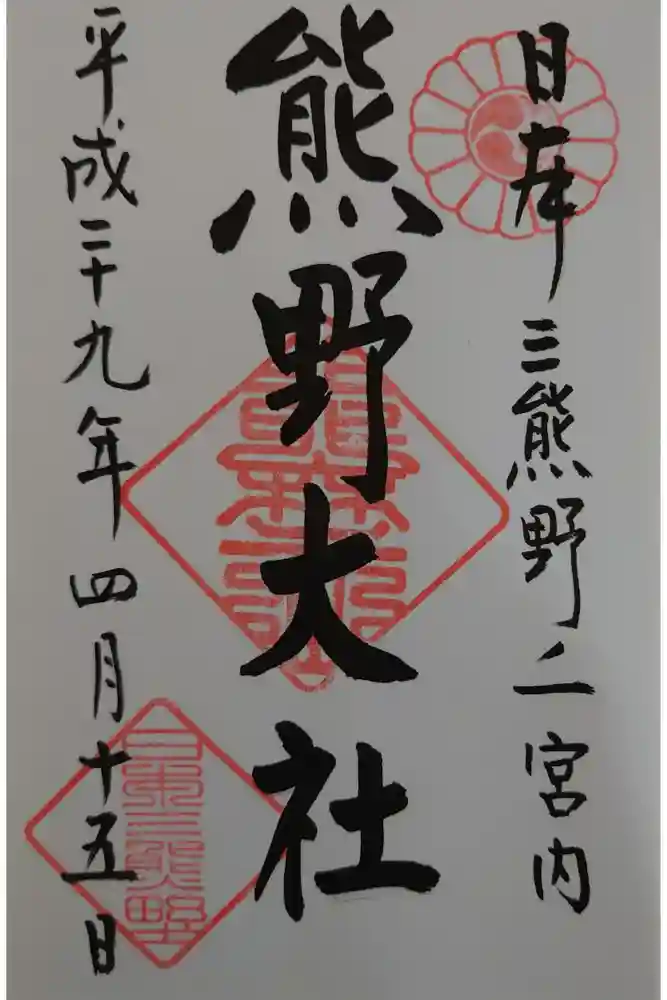 日本三熊野之一宮内
熊野大社
平成二十九年四月十五日